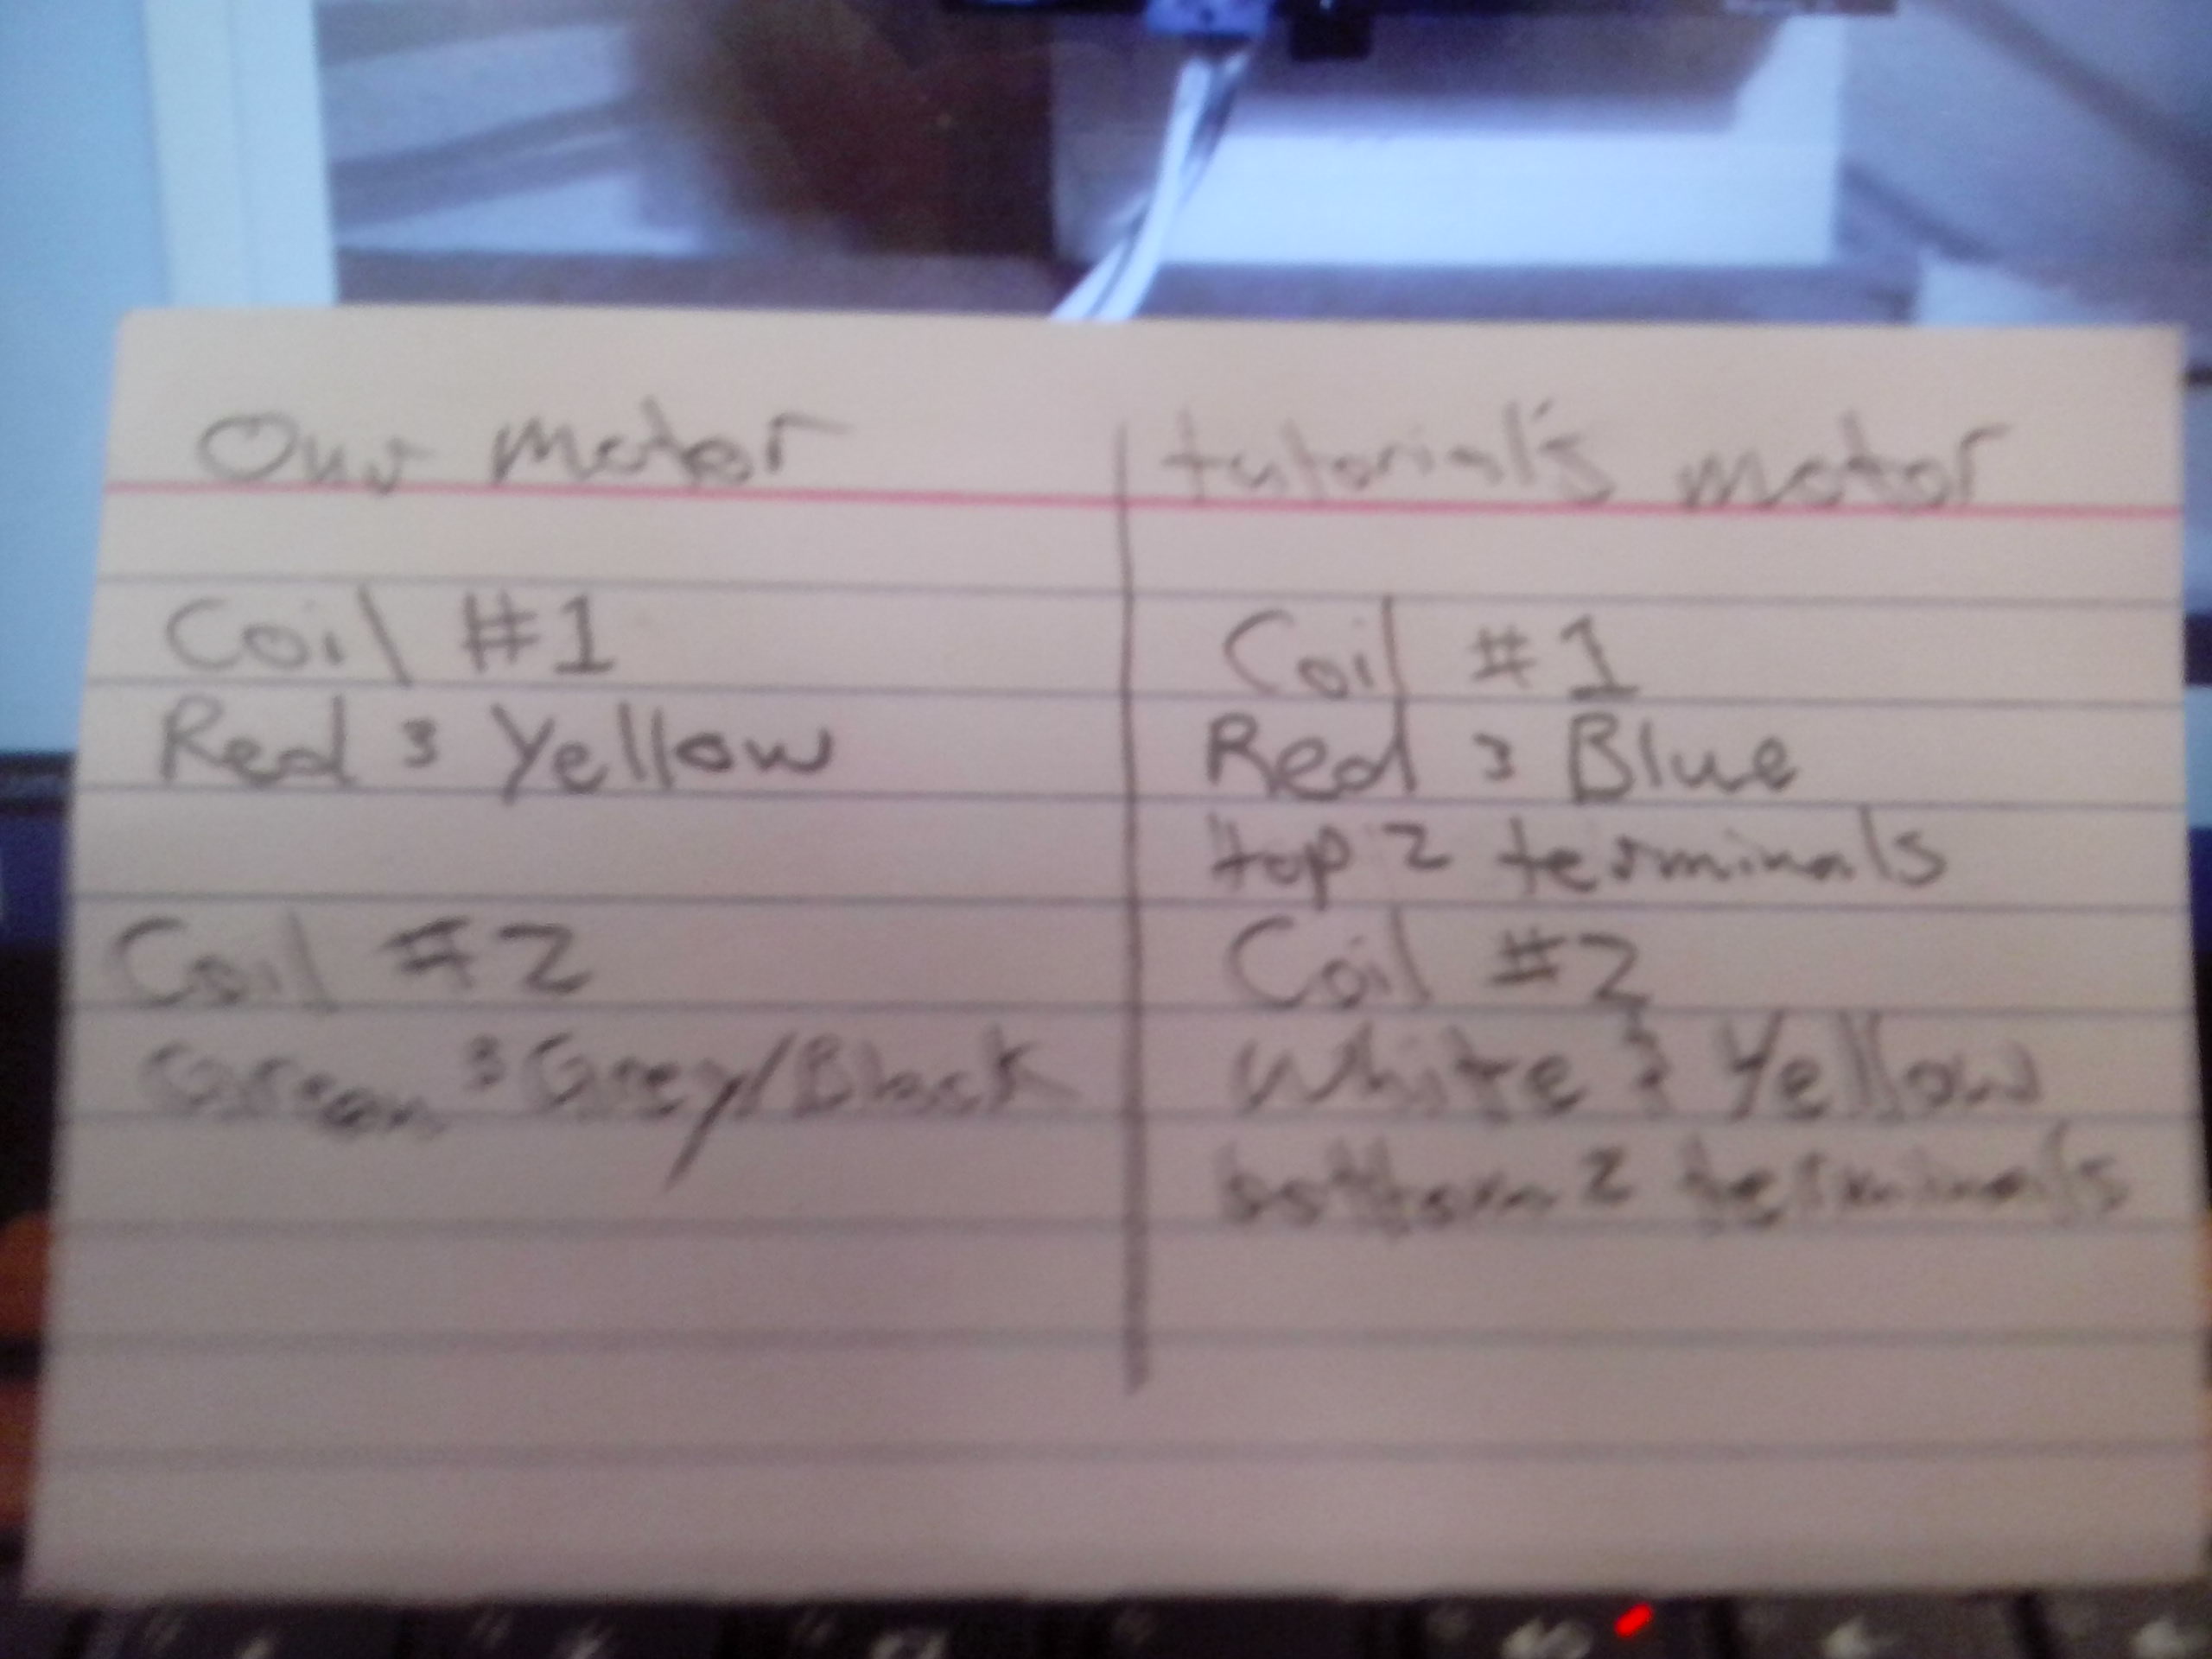 Our motor
Coil #1
Red & Yellow
Coil #2
Green & Grey/Black
tutorial's motor
Coil #1
Red & Blue
top 2 terminals
Coil #2
White & Yellow
bottom 2 terminals